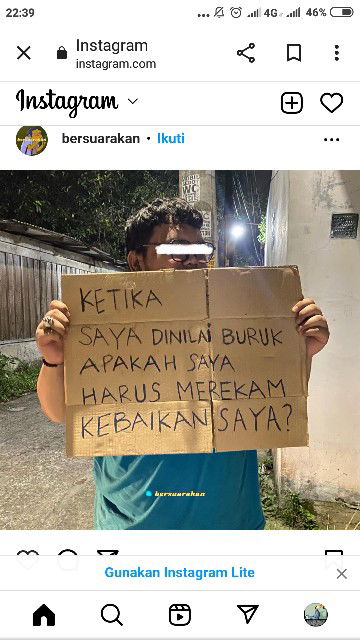 22:39
4G
46%
Instagram
instagram.com
Instagram
bersuarakan • Ikuti
WC
KETIKA
SAYA DINILAI BURUK
APAKAH SAYA
HARUS MEREKAM
KEBAIKAN SAYA?
bersuarakan
Gunakan Instagram Lite